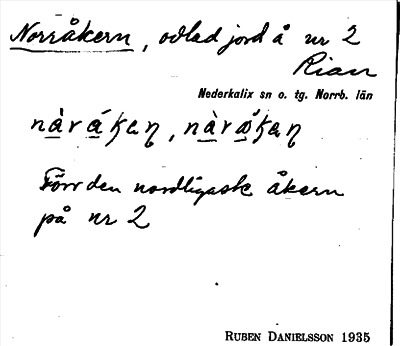 Norråkern, odlad jord å nr 2
Rian
Nederkalix sn o. tg. Norrb. län
Förr den nordligaste åkern
på nr 2
RUBEN DANIELSSON 1935